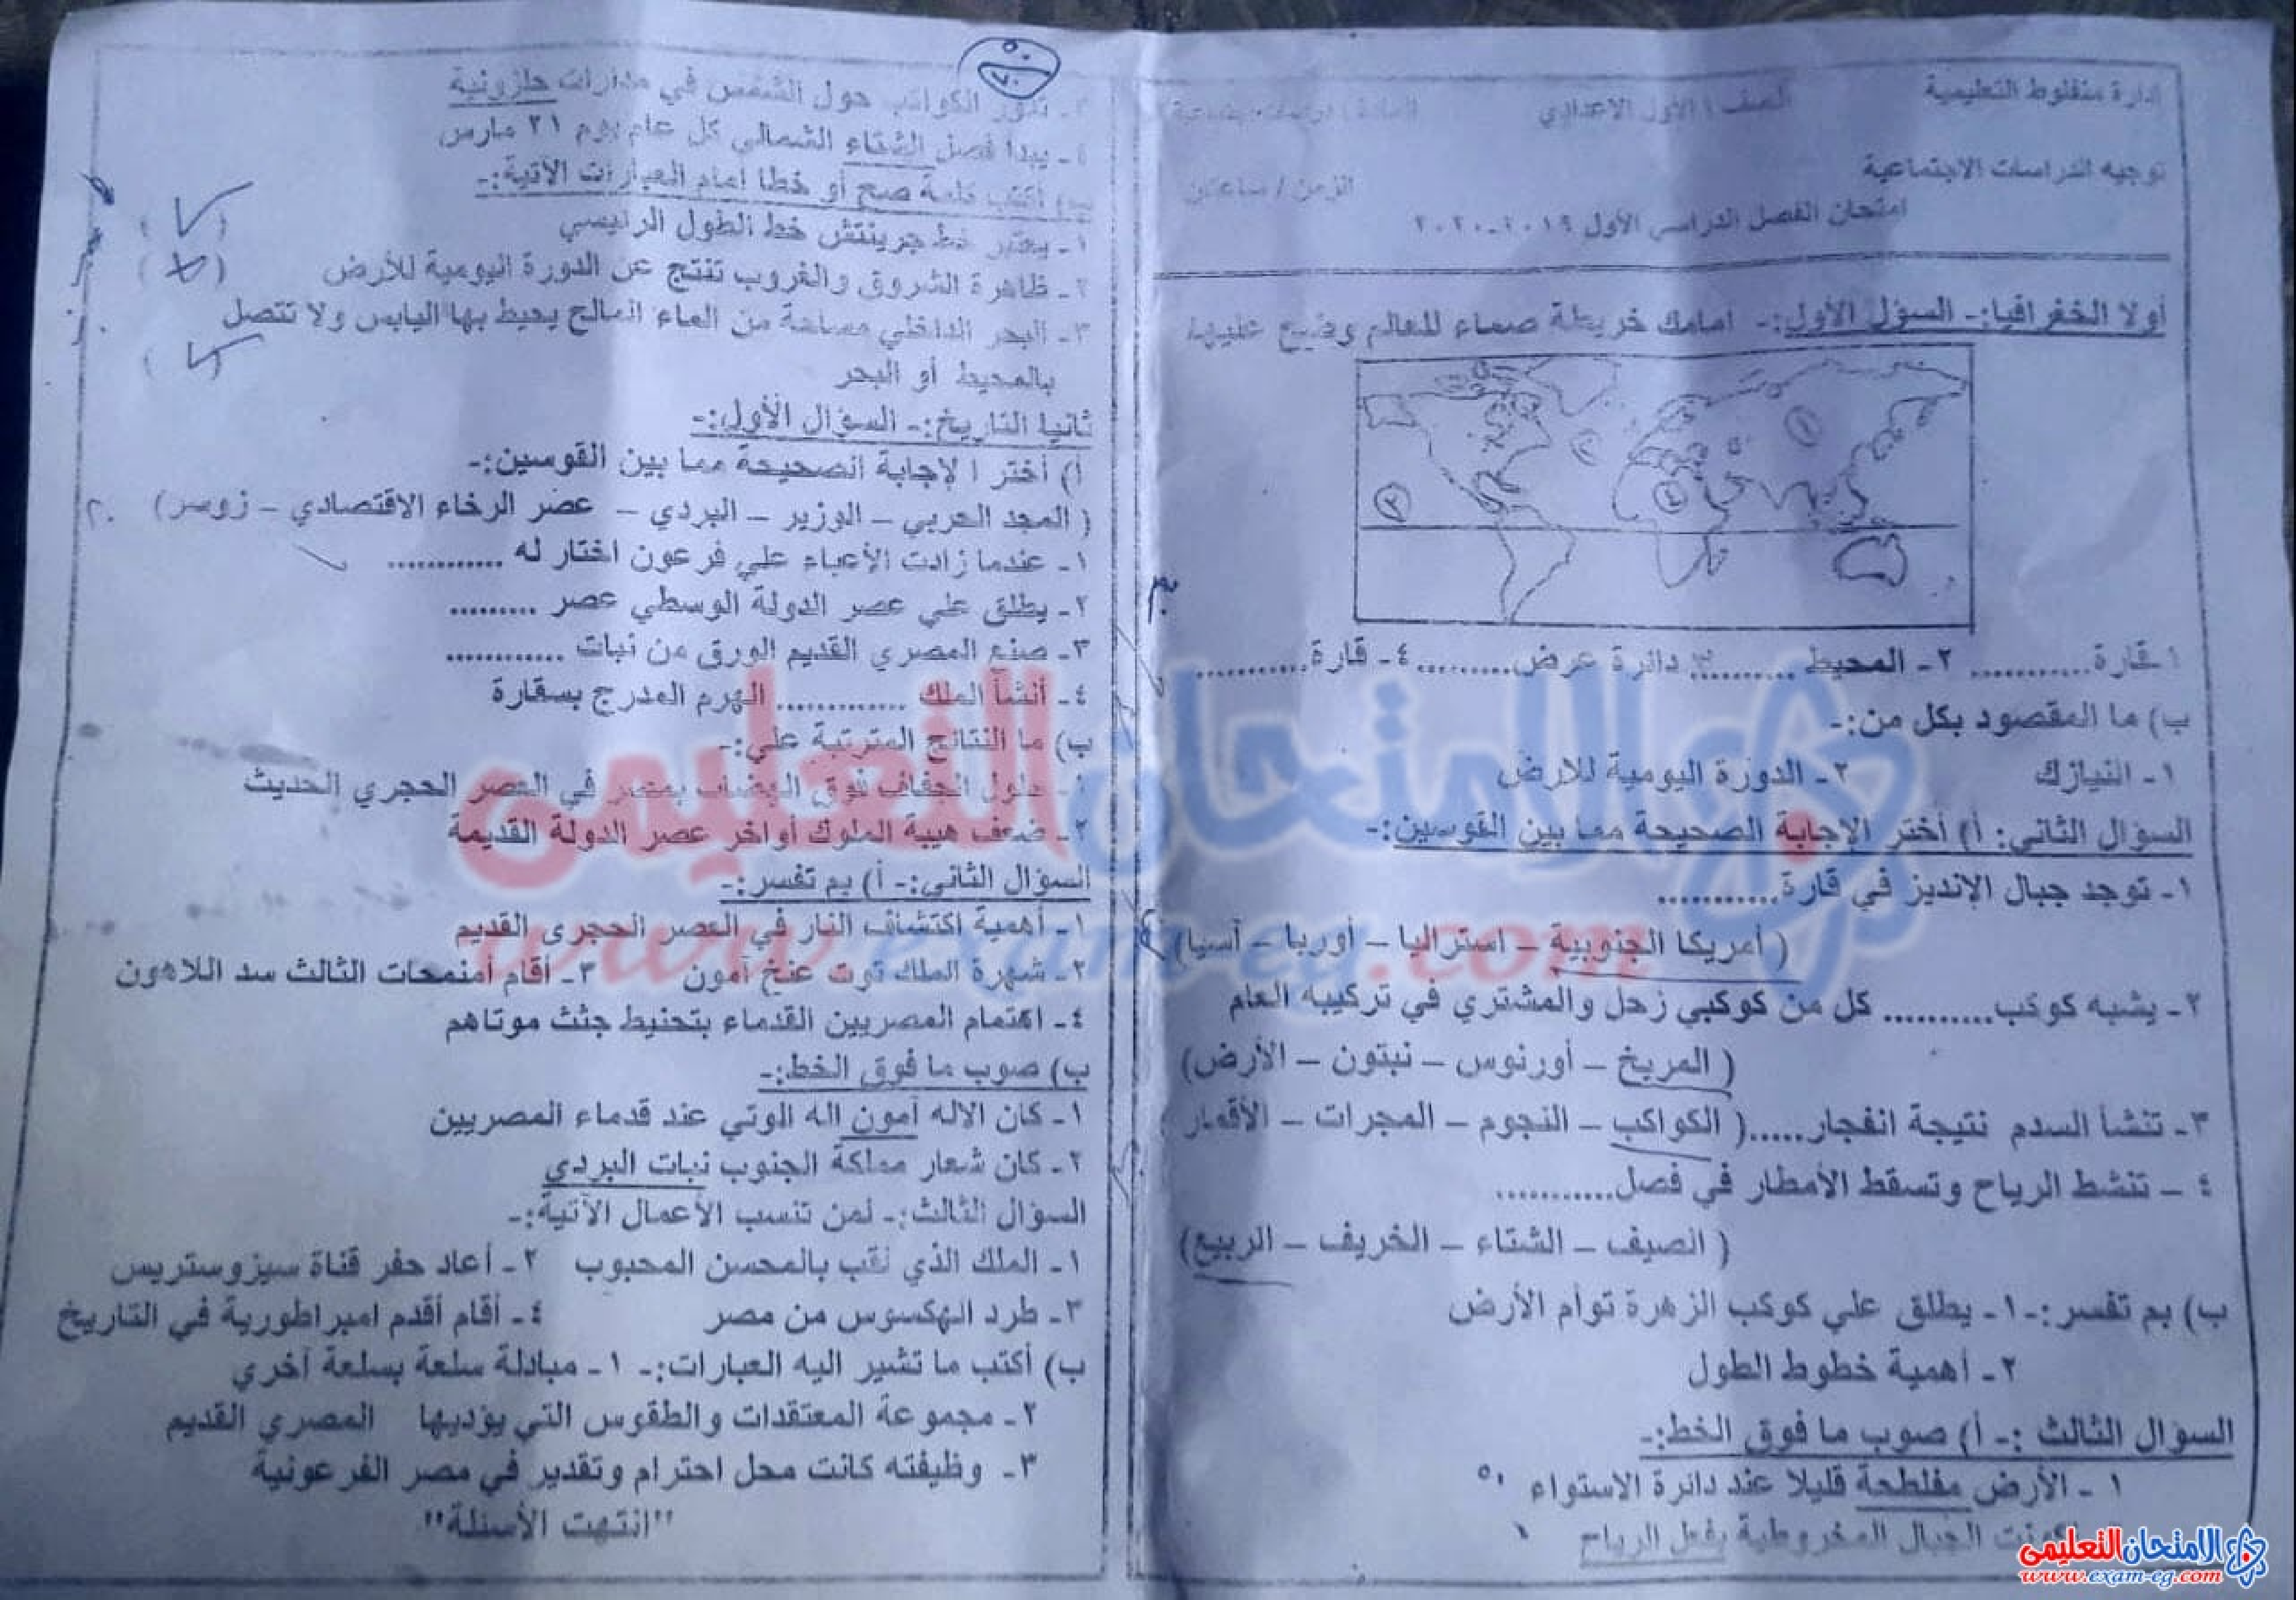 إدارة منفلوط التعليمية
الصف الأول الاعدادي
توجيه الدراسات الاجتماعية
الزمن / ساعتان
امتحان الفصل الدراسي الأول ٢٠١٩-٢٠٢٠
أولا الخغرافيا:- السؤل الأول:- امامك خريطة صماء للعالم وضح عليها
١
٢
٣
٤
١-قارة........... ٢- المحيط ..........٣ دائرة عرض.........٤- قارة..........
ب) ما المقصود بكل من:-
١- النيازك ٢- الدورة اليومية للارض
السؤال الثاني: أ) أختر الإجابة الصحيحة مما بين القوسين:-
١- توجد جبال الإنديز في قارة...........
( أمريكا الجنوبية – استراليا – أوربا – آسيا)
٢- يشبه كوكب.......... كل من كوكبي زحل والمشتري في تركيبه العام
( المريخ – أورنوس – نبتون – الأرض)
٣- تنشأ السدم نتيجة انفجار.....( الكواكب – النجوم – المجرات – الأقمار
٤ – تنشط الرياح وتسقط الأمطار في فصل...........
( الصيف – الشتاء – الخريف – الربيع)
ب) بم تفسر:-١- يطلق علي كوكب الزهرة توأم الأرض
٢- أهمية خطوط الطول
السؤال الثالث :- أ) صوب ما فوق الخط:-
١ - الأرض مفلطحة قليلا عند دائرة الاستواء
الجبال المخروطية بفعل الرياح
٣- تدور الكواكب حول الشمس في مدارات حلزونية
٤- يبدا فصل الشتاء الشمالي كل عام يوم ٢١ مارس
ب) أكتب كلمة صح أو خطا امام العبارات الأتية:-
١- يعتبر خط جرينتش خط الطول الرئيسي ( )
٢- ظاهرة الشروق والغروب تنتج عن الدورة اليومية للأرض ( )
٣- البحر الداخلي مساحة من الماء المالح يحيط بها اليابس ولا تتصل
بالمحيط أو البحر ( )
ثانيا التاريخ:- السؤال الأول:-
أ) أختر ا لإجابة الصحيحة مما بين القوسين:-
( المجد الحربي – الوزير – البردي – عصر الرخاء الاقتصادي – زوسر)
١- عندما زادت الأعباء علي فرعون اختار له ............
٢- يطلق علي عصر الدولة الوسطي عصر .........
٣- صنع المصري القديم الورق من نبات ............
٤- أنشأ الملك ............. الهرم المدرج بسقارة
ب) ما النتائج المترتبة علي:-
١- حلول الجفاف فوق الهضاب بمصر في العصر الحجري الحديث
٢- ضعف هيبة الملوك أواخر عصر الدولة القديمة
السؤال الثاني:- أ) بم تفسر:-
١- أهمية اكتشاف النار في العصر الحجرى القديم
٢- شهرة الملك توت عنخ آمون ٣- أقام أمنمحات الثالث سد اللاهون
٤- اهتمام المصريين القدماء بتحنيط جثث موتاهم
ب) صوب ما فوق الخط:-
١- كان الاله آمون اله الوتي عند قدماء المصريين
٢- كان شعار مملكة الجنوب نبات البردي
السؤال الثالث:- لمن تنسب الأعمال الآتية:-
١- الملك الذي لقب بالمحسن المحبوب ٢- أعاد حفر قناة سيزوستريس
٣- طرد الهكسوس من مصر ٤- أقام أقدم امبراطورية في التاريخ
ب) أكتب ما تشير اليه العبارات:- ١- مبادلة سلعة بسلعة آخري
٢- مجموعة المعتقدات والطقوس التي يؤديها المصري القديم
٣- وظيفته كانت محل احترام وتقدير في مصر الفرعونية
"انتهت الأسئلة"
الامتحان التعليمى
www.exam-eg.com
الامتحان التعليمى
www.exam-eg.com